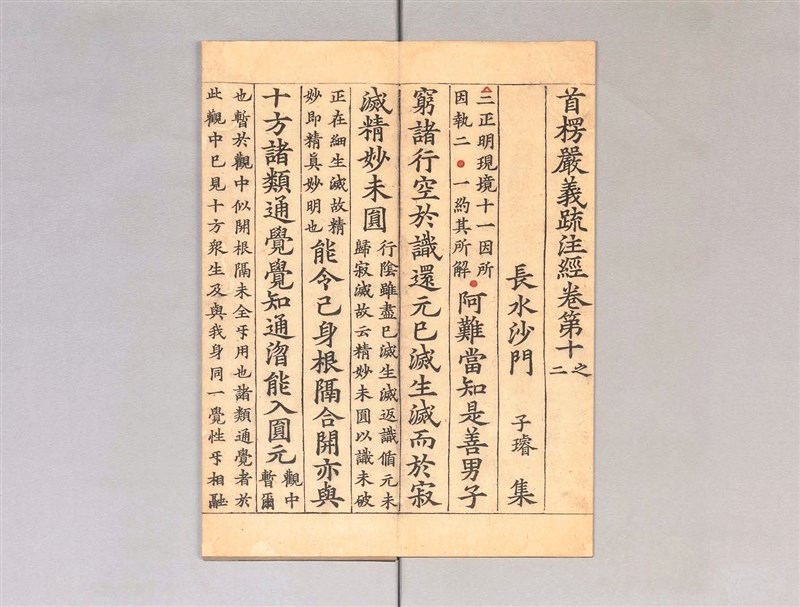 首楞嚴義疏注經卷第十之二
長水沙門 子璿 集
二正明現境十一因所
因執二 一約其所解
阿難當知是善男子
窮諸行空於識還元已滅生滅而於寂
滅精妙未圓
行陰雖盡已滅生滅返識脩元未
歸寂滅故云精妙未圓以識未破
正在細生滅故精
妙即精眞妙明也
能令己身根隔合開亦與
十方諸類通覺覺知通㳷能入圓元
觀中
暫爾
也暫於觀中似開根隔未全㸦用也諸類通覺者於
此觀中已見十方衆生及與我身同一覺性㸦相融